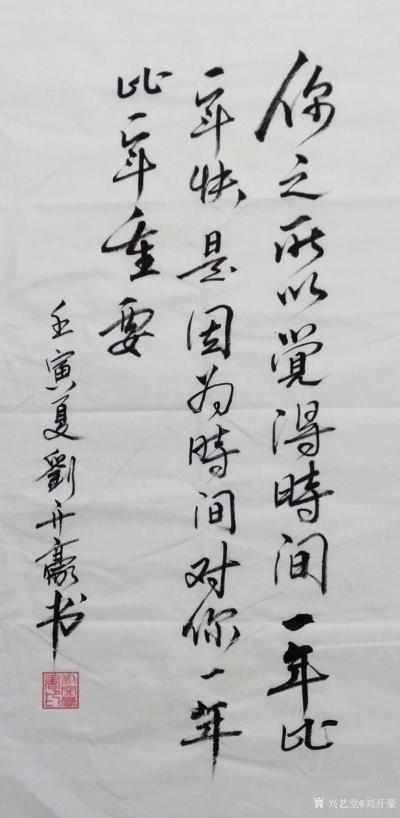 你之所以覺得時间一年比
一年快是因为時间对你一年
比一年重要
壬寅夏劉开豪书
兴艺堂@刘开豪